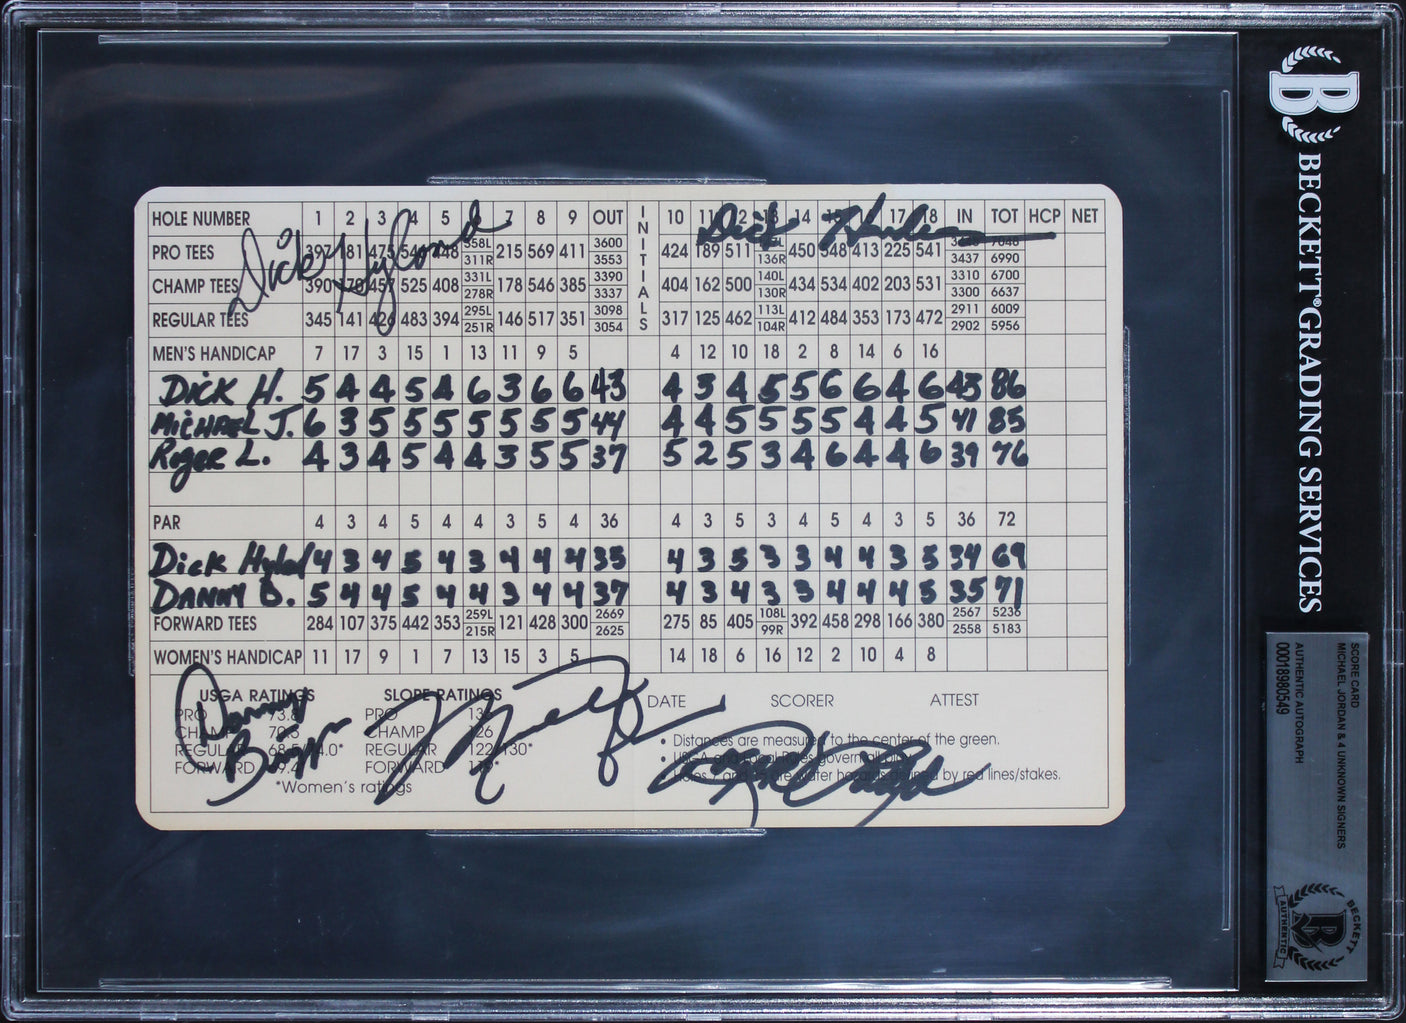 HOLE NUMBER 1 2 3 4 5 7 8 9 OUT INITIALS 10 11 12 13 14 15 17 18 IN TOT HCP NET
Dick Hyland
Dick
PRO TEES 397 181 475 448 358L 311R 215 569 411 3600 3553 424 189 511 136R 450 548 413 225 541 3437 7046 6990
CHAMP TEES 390 170 457 525 408 331L 278R 178 546 385 3390 3337 404 162 500 140L 130R 434 534 402 203 531 3310 3300 6700 6637
REGULAR TEES 345 141 426 483 394 295L 251R 146 517 351 3098 3054 317 125 462 113L 104R 412 484 353 173 472 2911 2902 6009 5956
MEN'S HANDICAP 7 17 3 15 1 13 11 9 5 4 12 10 18 2 8 14 6 16
DICK H. 5 4 4 5 4 6 3 6 6 43 4 3 4 5 5 6 6 4 6 43 86
MICHAEL J. 6 3 5 5 5 5 5 5 5 44 4 4 5 5 5 5 4 4 5 41 85
Roger L. 4 3 4 5 4 4 3 5 5 37 5 2 5 3 4 6 4 4 6 39 76
PAR 4 3 4 5 4 4 3 5 4 36 4 3 5 3 4 5 4 3 5 36 72
Dick Hyland 4 3 4 5 4 3 4 4 4 35 4 3 5 3 3 4 4 3 5 34 69
DANNY B. 5 4 4 5 4 4 3 4 4 37 4 3 4 3 3 4 4 4 5 35 71
FORWARD TEES 284 107 375 442 353 259L 215R 121 428 300 2669 2625 275 85 405 108L 99R 392 458 298 166 380 2567 2558 5236 5183
WOMEN'S HANDICAP 11 17 9 1 7 13 15 3 5 14 18 6 16 12 2 10 4 8
USGA RATINGS SLOPE RATINGS DATE SCORER ATTEST
PRO 73.8 PRO
CHAMP CHAMP 126
REGULAR REGULAR 122/130*
FORWARD FORWARD
*Women's ratings
Danny
• Distances are measured to the center of the green.
• USGA and Local Rules govern all play.
• are water hazards defined by red lines/stakes.
B
BECKETT® GRADING SERVICES
SCORE CARD
MICHAEL JORDAN & 4 UNKNOWN SIGNERS
AUTHENTIC AUTOGRAPH
00018980549
BECKETT
B
AUTHENTIC